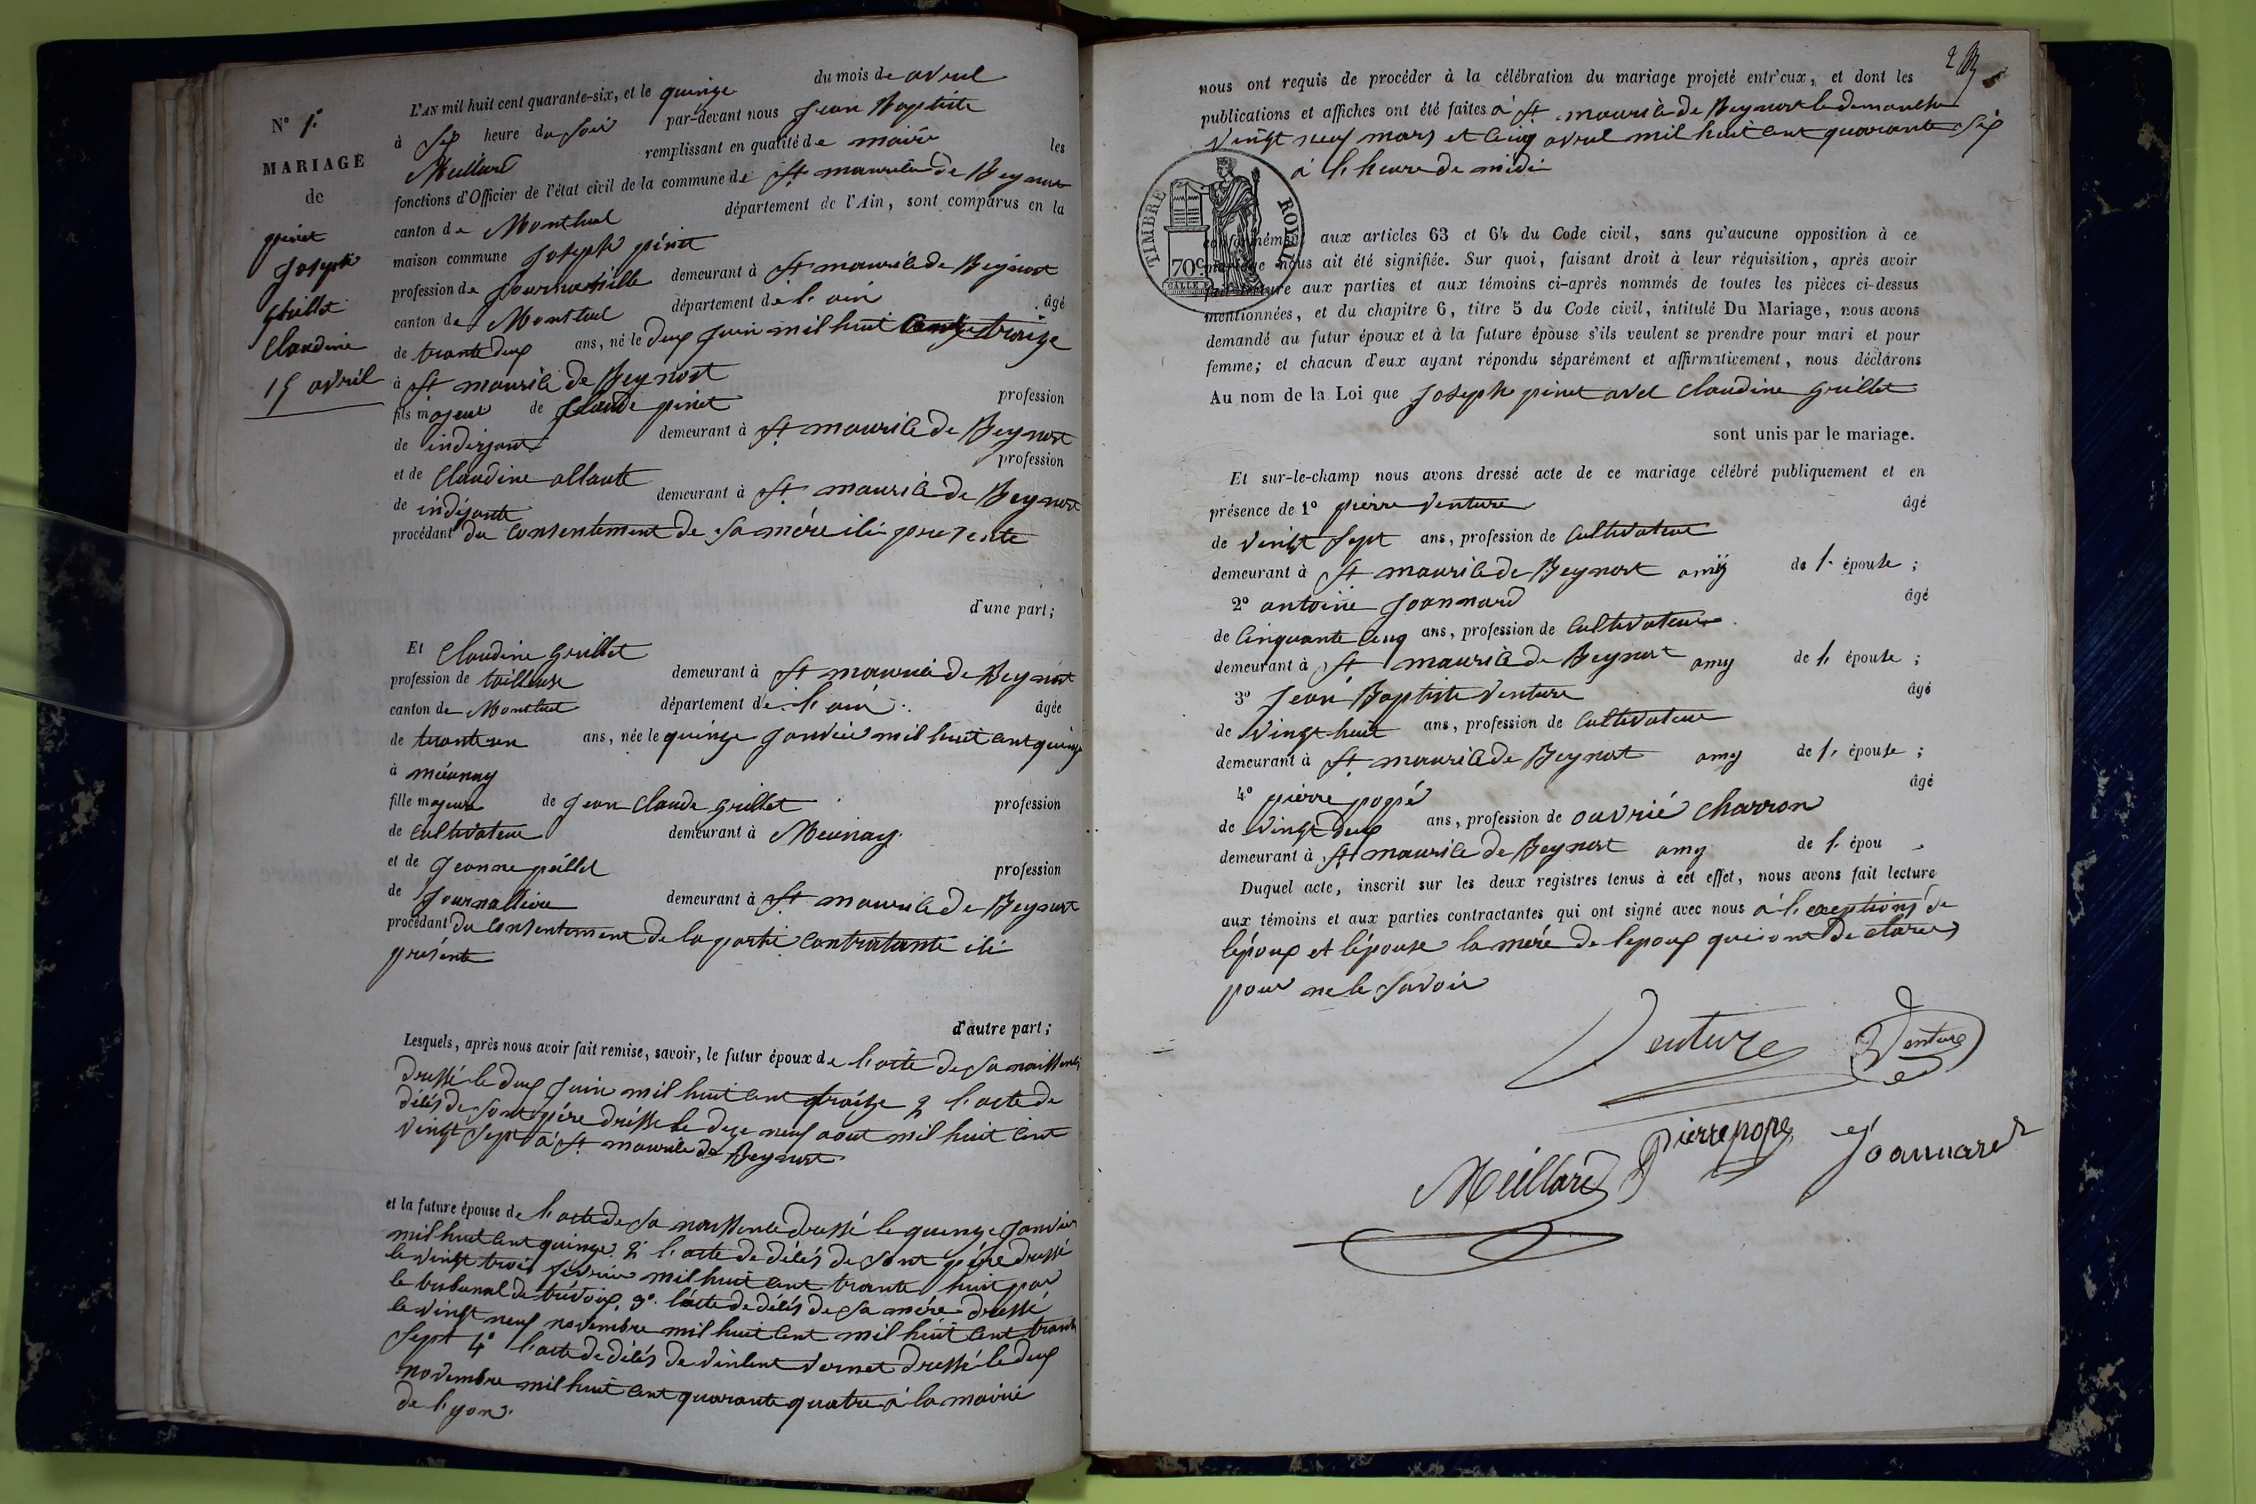 N° 1.
MARIAGE
de
pinet
Joseph
Grillet
Claudine
15 avril
L'AN mil huit cent quarante-six, et le quinze du mois de avril
à six heure du soir par-devant nous Jean Baptiste
Meillard remplissant en qualité de maire les
fonctions d'Officier de l'état civil de la commune de St maurice de Beynost
canton de Montluel département de l'Ain, sont comparus en la
maison commune Joseph pinet
profession de Journaille demeurant à St maurice de Beynost
canton de Montluel département de l. ain âgé
de trante deux ans, né le deux juin mil huit cent traize
à St maurice de Beynost
fils majeur de Claude pinet profession
de indirjant demeurant à St maurice de Beynost
et de Claudine allante profession
de indijante demeurant à St maurice de Beynost
procédant du consentement de sa mére ici presente
d'une part;
Et Claudine Grillet
profession de tailleuse demeurant à St maurice de Beynost
canton de Montluel département de l. ain âgée
de trante un ans, née le quinze janvier mil huit cent quinze
à mionnay
fille majeure de Jean Claude Grillet profession
de cultivateur demeurant à Mionnay
et de Jeanne péillet profession
de Journalliere demeurant à St maurice de Beynost
procédant du consentement de la partie contratante ici
présente
d'autre part;
Lesquels, après nous avoir fait remise, savoir, le futur époux de l. acte de sa naissence
dressé le deux juin mil huit cent traize 2 l. acte de
délés de sont pére drésse le dize neuf aout mil huit cent
vingt sept à St maurice de Beynost
et la future épouse de l. acte de sa naissence dressé le quinze janvier
mil huit cent quinze. 2° l. acte de délés de sont pére dressé
le vingt trois fevrier mil huit cent trante huit par
le tribunal de trévoux, 3°. l'acte de délés de sa mére dressé
le vingt neuf novembre mil huit cent mil huit cent trante
sept 4° l. acte de délés de vinlent vernet dressé le deux
novembre mil huit cent quarante quatre à la mairie
de lyon.
nous ont requis de procéder à la célébration du mariage projeté entr'eux, et dont les
publications et affiches ont été faites à St. maurice de Beynost le demanche
vingt neuf mars et cinq avril mil huit cent quarante six
à l. heure de midi
TIMBRE ROYAL
70c
conformément aux articles 63 et 64 du Code civil, sans qu'aucune opposition à ce
mariage nous ait été signifiée. Sur quoi, faisant droit à leur réquisition, après avoir
fait lecture aux parties et aux témoins ci-après nommés de toutes les pièces ci-dessus
mentionnées, et du chapitre 6, titre 5 du Code civil, intitulé Du Mariage, nous avons
demandé au futur époux et à la future épouse s'ils veulent se prendre pour mari et pour
femme; et chacun d'eux ayant répondu séparément et affirmativement, nous déclarons
Au nom de la Loi que Joseph pinet avec Claudine Grillet
sont unis par le mariage.
Et sur-le-champ nous avons dressé acte de ce mariage célébré publiquement et en
présence de 1° pierre venture âgé
de vingt sept ans, profession de cultivateur
demeurant à St maurice de Beynost amy de l. épouse;
2° antoine Joannard âgé
de cinquante cinq ans, profession de cultivateur
demeurant à St maurice de Beynost amy de l. épouse;
3° Jean Baptiste venture âgé
de vingt huit ans, profession de cultivateur
demeurant à St. maurice de Beynost amy de l. épouse;
4° pierre popé âgé
de vingt deux ans, profession de ouvrié charron
demeurant à St maurice de Beynost amy de l. épou
Duquel acte, inscrit sur les deux registres tenus à cet effet, nous avons fait lecture
aux témoins et aux parties contractantes qui ont signé avec nous à l. exeptions de
l'époux et l'épouse la mére de l'epoux qui ont declarer
pour ne le savoir
Venture Venture
Pierre pope Joannard
Meillard